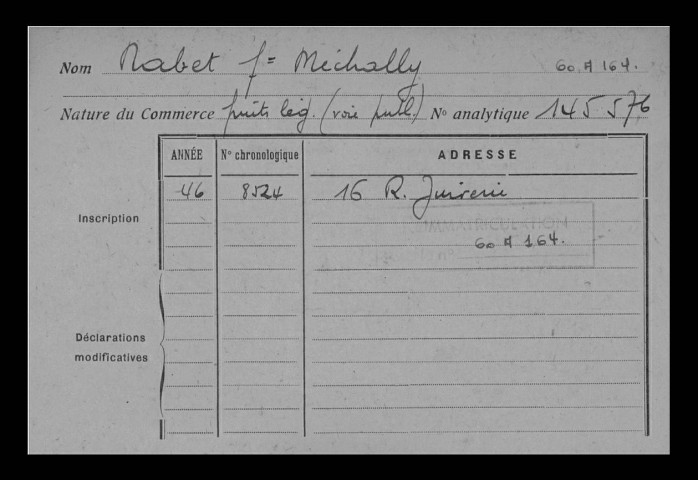 Nom Nabet f= Mechally 60 A 164.
Nature du Commerce fruits leg. (voie publ.) N° analytique 145 576
ANNÉE N° chronologique ADRESSE
Inscription 46 8524 16 R. Juiverie
IMMATRICULATION
60 A 164.
Déclarations
modificatives